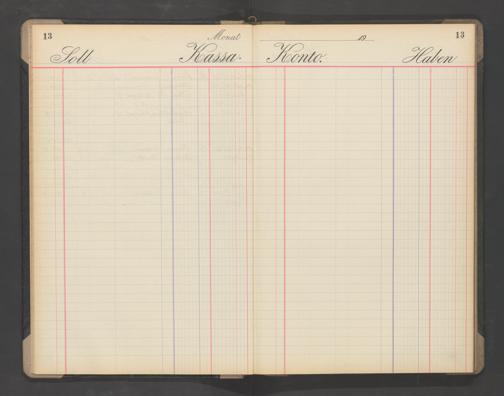 13 Monat 19 13
Soll Kassa- Konto. Haben